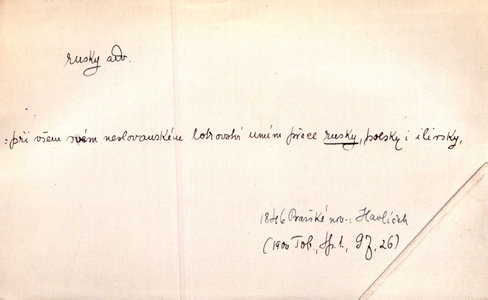 rusky adv.
: při všem svém neslovanském lotrovství umím přece rusky, polsky i ilirsky,
1846 Pražské nov., Havlíček
(1900 Tob.,